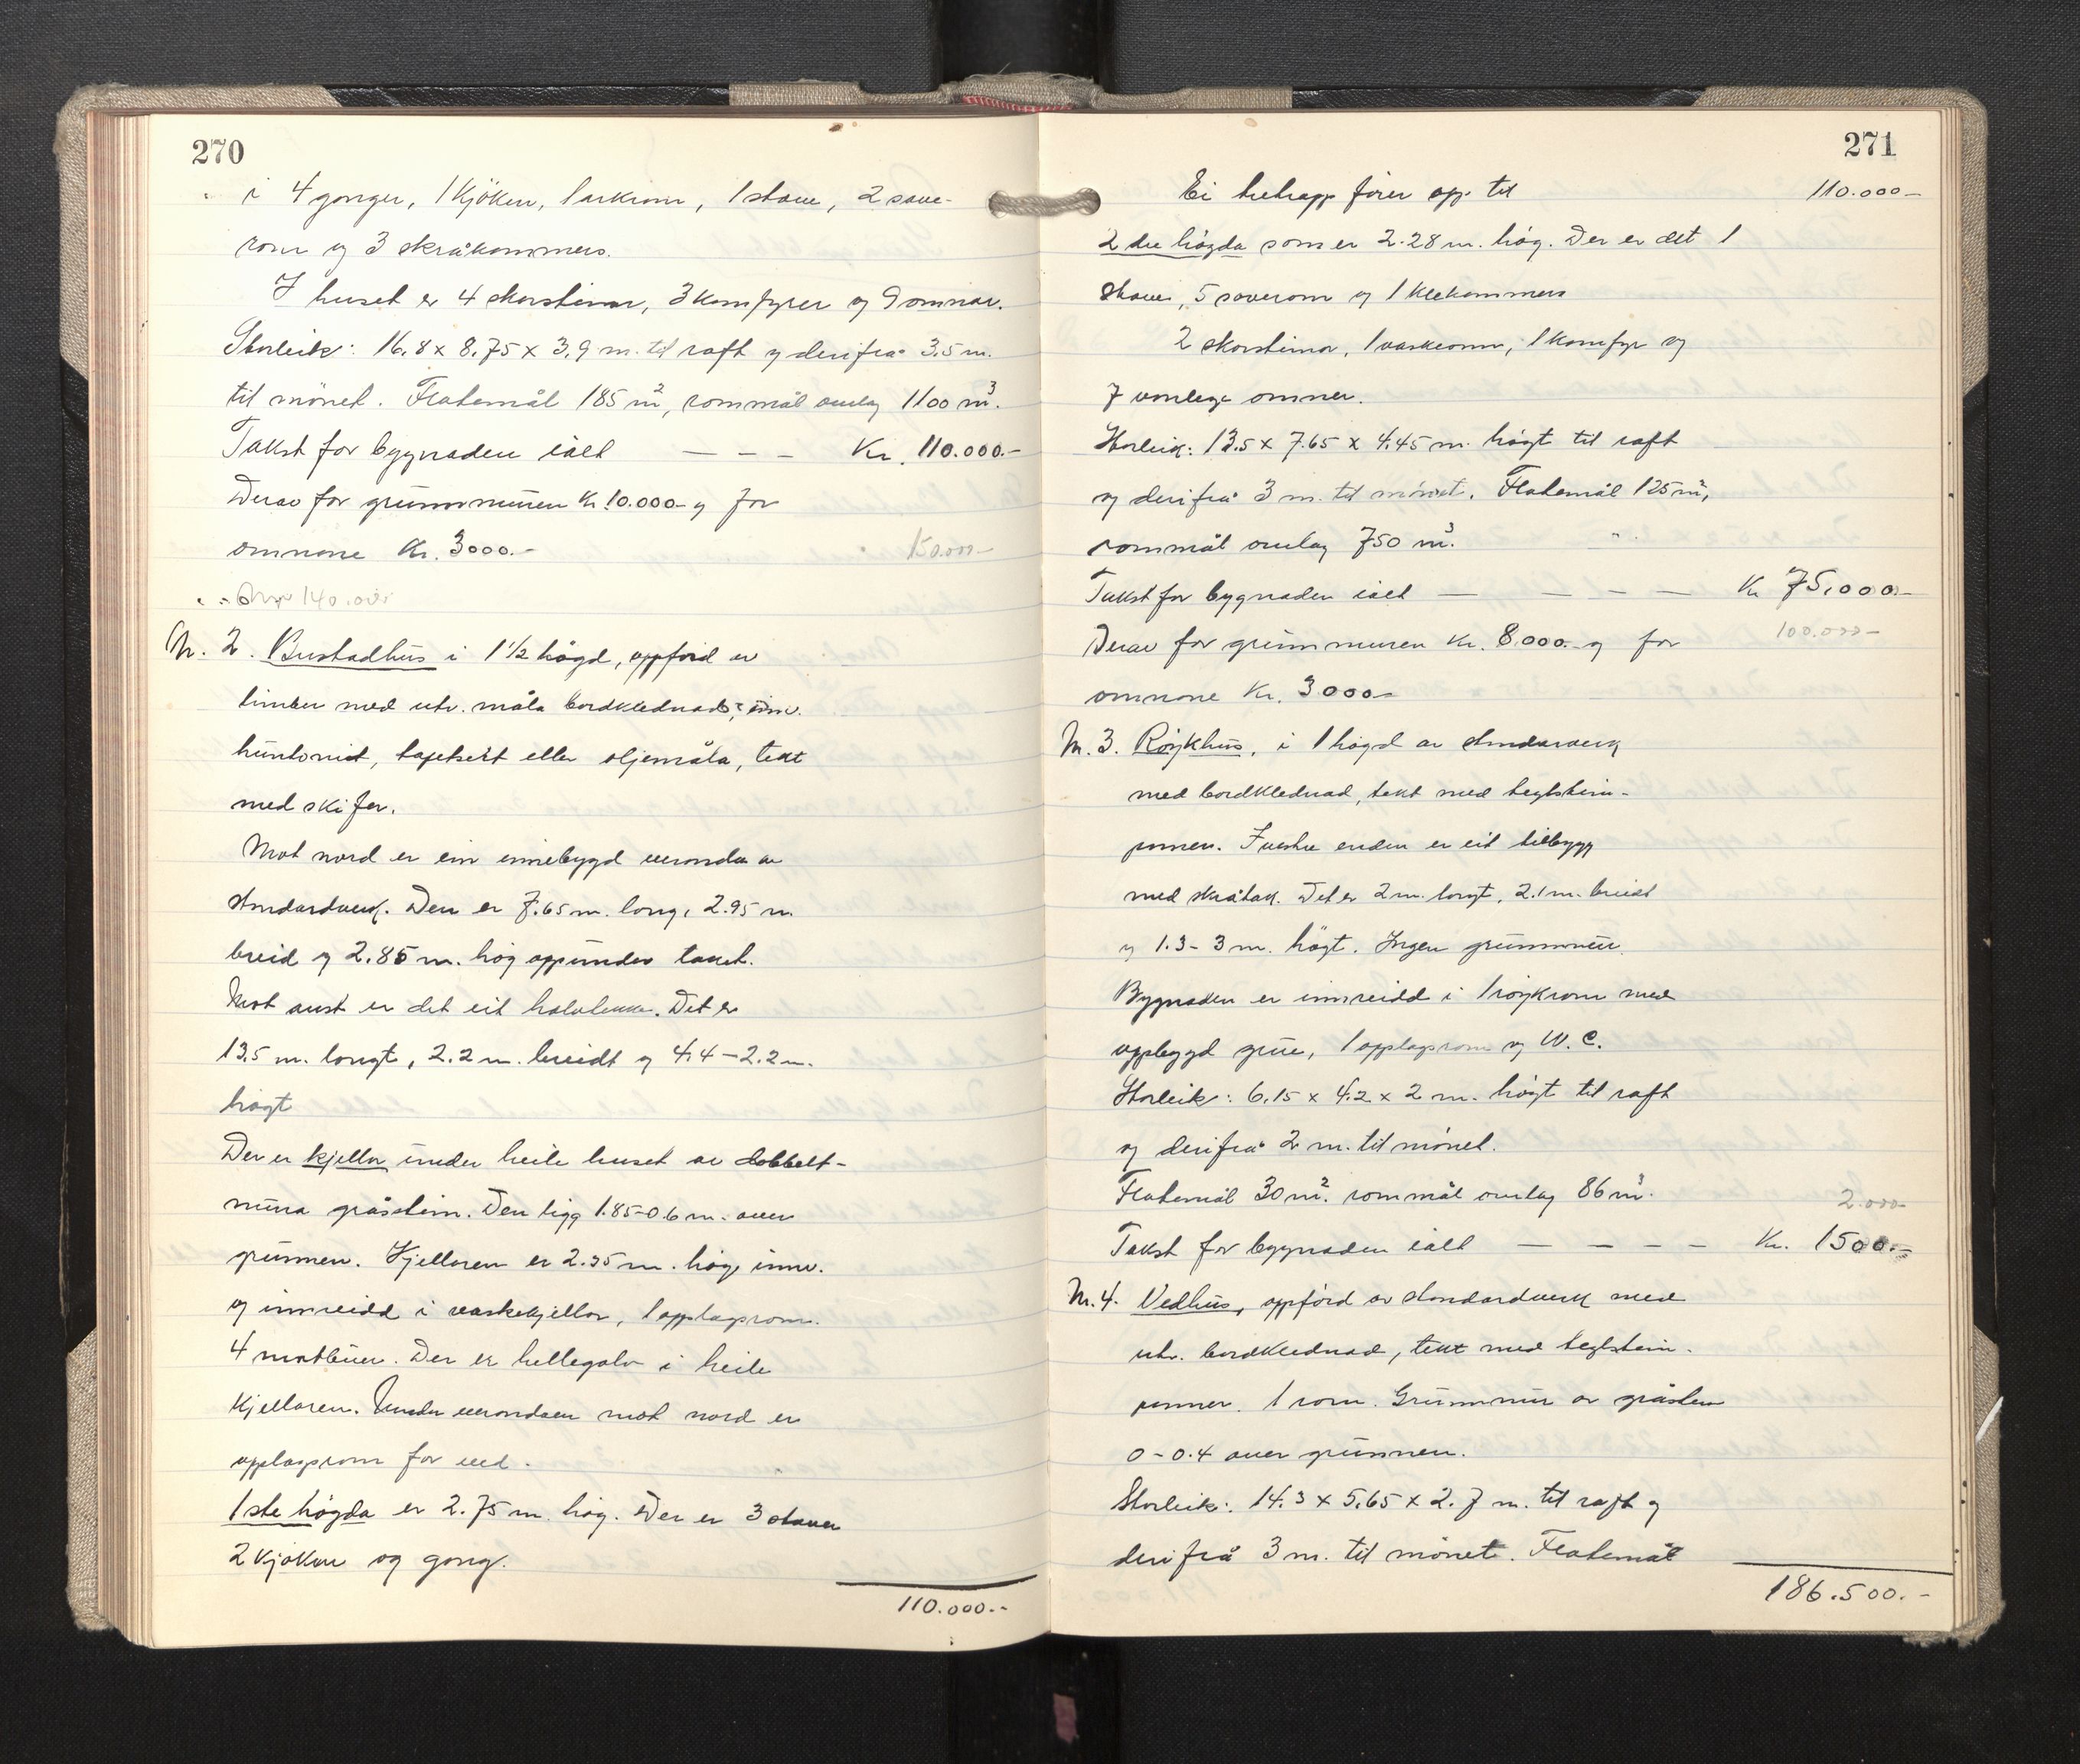 270
i 4 gonger, 1 kjöken, 1 arkrom, 1 stove, 2 sove-
rom og 3 skråkommers.
I huset er 4 skorsteinar, 3 komfyrer og 9 omnar.
Storleik: 16.8 x 8.75 x 3.9 m. til raft og derifrå 3.5 m.
til mönet. Flatemål 185 m², rommål omlag 1100 m³.
Takst for bygnaden ialt — — — Kr. 110.000.-
Derav for grunnmuren Kr. 10.000.- og for
omnane Kr. 3000.-
150.000-
140.000
Nr. 2. Bustadhus i 1½ högd, oppförd av
timber med utv. måla bordklednad, innv.
huntonit, tapetsert eller oljemåla, tekt
med skifer.
Mot nord er ein innebygd veranda av
standardverk. Den er 7.65 m. long, 2.95 m.
breid og 2.85 m. hög oppunder taket.
Mot aust er det eit halvtekke. Det er
13.5 m. longt, 2.2 m. breidt og 4.4 – 2.2 m.
högt
Der er kjellar under heile huset av dobbelt-
mura gråstein. Den ligg 1.85-0.6 m. over
grunnen. Kjellaren er 2.35 m. hög innv.
og innreidd i vaskekjellar, 1 opplagsrom.
4 matbuer. Der er hellegolv i heile
kjellaren. Under verandaen mot nord er
opplagsrom for ved.
1ste högda er 2.75 m. hög. Der er 3 stover
2 kjöken og gong.
110.000.-
271
Ei tretrapp förer opp til 110.000-
2dre högda som er 2.28 m. hög. Der er det 1
stove, 5 soverom og 1 klekommers
2 skorsteinar, 1 vaskeomn, 1 komfyr og
7 vanlege omner.
Storleik: 13.5 x 7.65 x 4.45 m. högt til raft
og derifrå 3 m. til mönet. Flatemål 125 m²,
rommål omlag 750 m³.
Takst for bygnaden ialt — — — — Kr 75.000.-
100.000-
Derav for grunnmuren Kr. 8.000.- og for
omnane Kr. 3000-
Nr. 3. Röykhus, i 1 högd av standarverk
med bordklednad, tekt med teglstein-
panner. I vestre enden er eit tilbygg
med skråtak. Det er 2 m. longt, 2.1 m. breidt
og 1.3 - 3 m. högt. Ingen grunnmur.
Bygnaden er innreidd i 1 röykrom med
oppbygd grue, 1 opplagsrom og W.C.
Storleik: 6.15 x 4.2 x 2 m. högt til raft
og derifrå 2 m. til mönet.
Flatemål 30 m². rommål omlag 86 m³.
2.000-
Takst for bygnaden ialt — — — — Kr. 1500.-
Nr. 4. Vedhus, oppförd av standardverk med
utv. bordklednad, tekt med teglstein-
panner. 1 rom. Grunnmur av gråstein
0 - 0.4 over grunnen.
Storleik: 14.3 x 5.65 x 2.7 m. til raft og
derifrå 3 m. til mönet. Flatemål
186.500.-